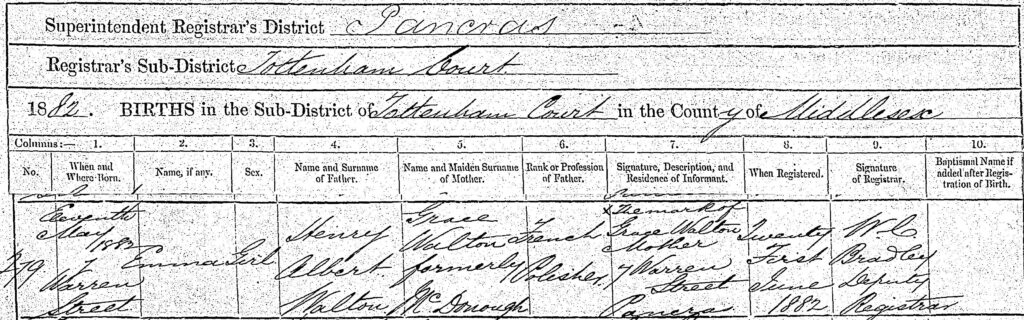 Superintendent Registrar's District Pancras
Registrar's Sub-District Tottenham Court
1882. BIRTHS in the Sub-District of Tottenham Court in the County of Middlesex
Columns:— 1. 2. 3. 4. 5. 6. 7. 8. 9. 10.
No. When and Where Born. Name, if any. Sex. Name and Surname of Father. Name and Maiden Surname of Mother. Rank or Profession of Father. Signature, Description, and Residence of Informant. When Registered. Signature of Registrar. Baptismal Name if added after Registration of Birth.
Eleventh May 1882 7 Warren Street
Emma
Girl
Henry Albert Walton
Grace Walton formerly McDonough
French Polisher
X The mark of Grace Walton Mother 7 Warren Street Pancras
Twenty First June 1882
W. C. Bradley Deputy Registrar